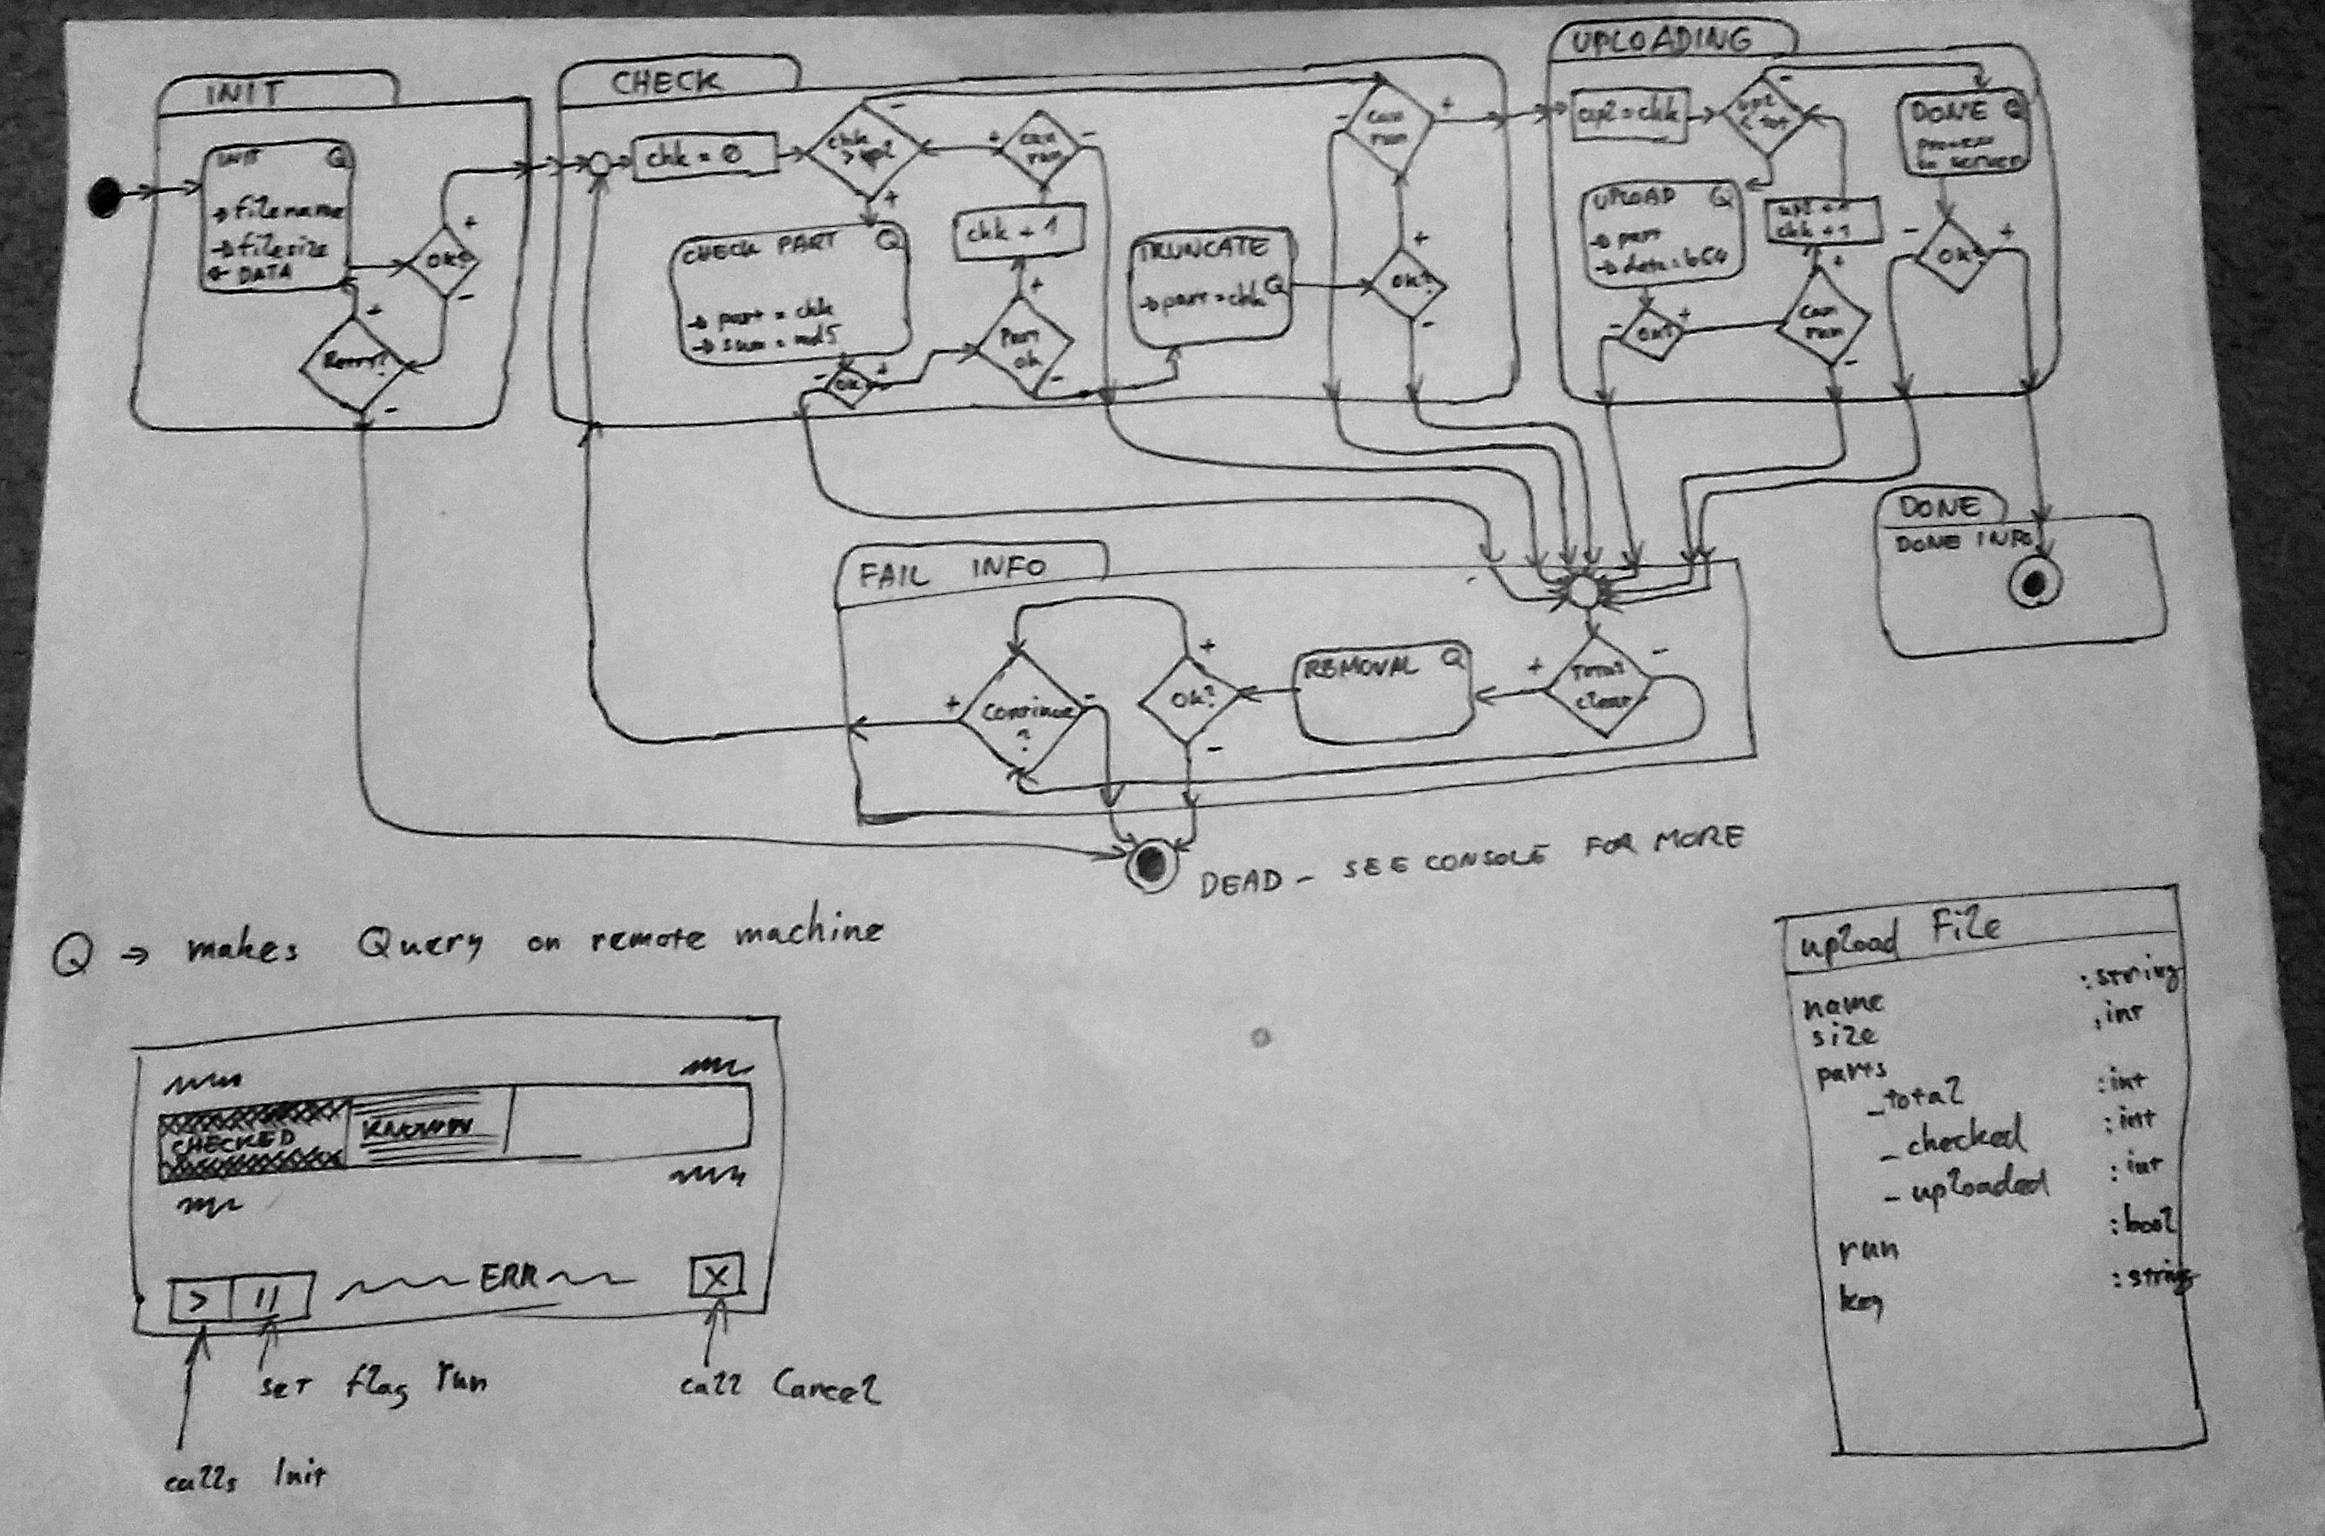 INIT
INIT Q
→ filename
→ filesize
← DATA
OK?
+
-
Retry?
+
-
CHECK
chk = 0
chk
> upl
-
+
can
run
+
-
chk + 1
CHECK PART Q
→ part = chk
→ sum = md5
OK
-
+
Part
ok
+
-
TRUNCATE
→ part = chk Q
OK?
+
-
can
run
-
+
UPLOADING
upl = chk
upl
< tot
-
UPLOAD Q
→ part
→ data = b64
OK?
-
+
can
run
+
-
upl + 1
chk + 1
DONE Q
process
on SERVER
OK?
-
+
DONE
DONE INFO
FAIL INFO
Total
clear
+
-
REMOVAL Q
OK?
+
-
Continue
?
+
-
DEAD - SEE CONSOLE FOR MORE
Q → makes Query on remote machine
CHECKED
KNOWN
> II
ERR
X
set flag run
call Cancel
calls Init
upload File
name :string
size :int
parts
_total :int
_checked :int
_uploaded :int
run :bool
key :string